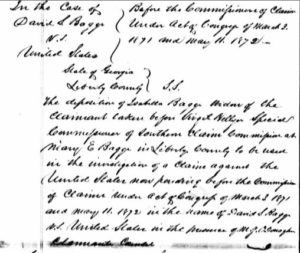 In the Case of
David S. Baggs
V.S.
United States
Before the Commissioner of Claims
Under Act of Congress of March 3.
1871 and May 11. 1872.
State of Georgia
Liberty County
S.S.
The deposition of Isabella Baggs Widow of the
Claimant taken before Virgil Hillyer Special
Commissioner of Southern Claims Commission at
Mary E Baggs in Liberty County to be used
in the investigation of a Claim against the
United States now pending before the Commission
of Claims Under Act of Congress of March 3 1871
and May 11. 1872 in the name of David S. Baggs
V.S. United States in the presence of M. J.
Claimants Counsel